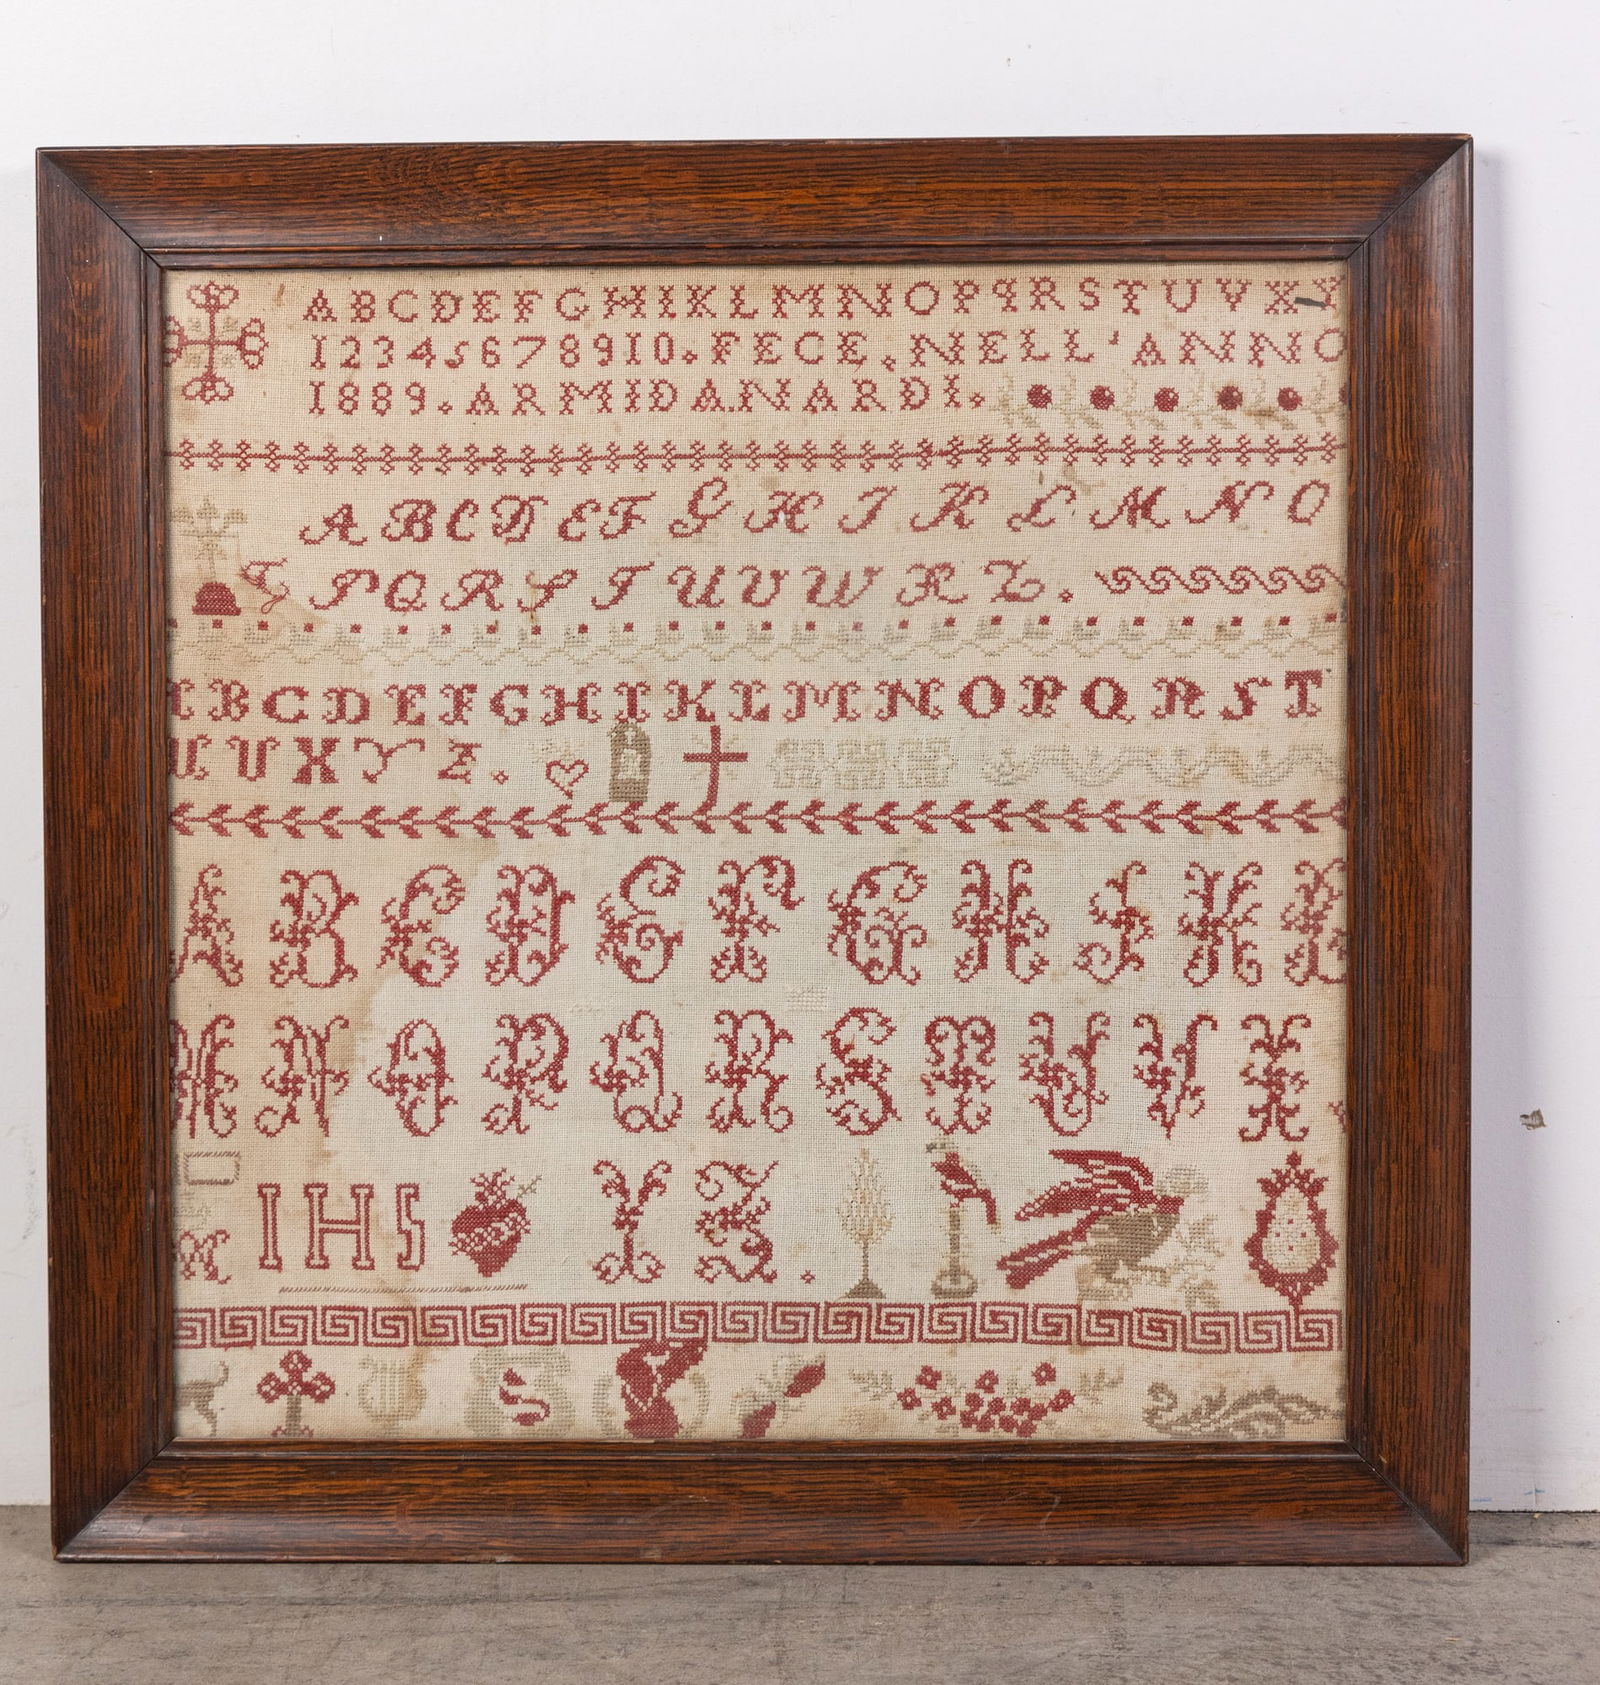 ABCDEFGHIKLMNOPQRSTUVXY
12345678910. FECE, NELL'ANNO
1889. ARMIDA NARDI.
ABCDEFGHIKLMNO
PQRSTUVWXZ.
ABCDEFGHIKLMNOPQRST
UVXYZ.
ABCDEFGHIKL
MNOPQRSTUVX
IHS YZ.
M
S